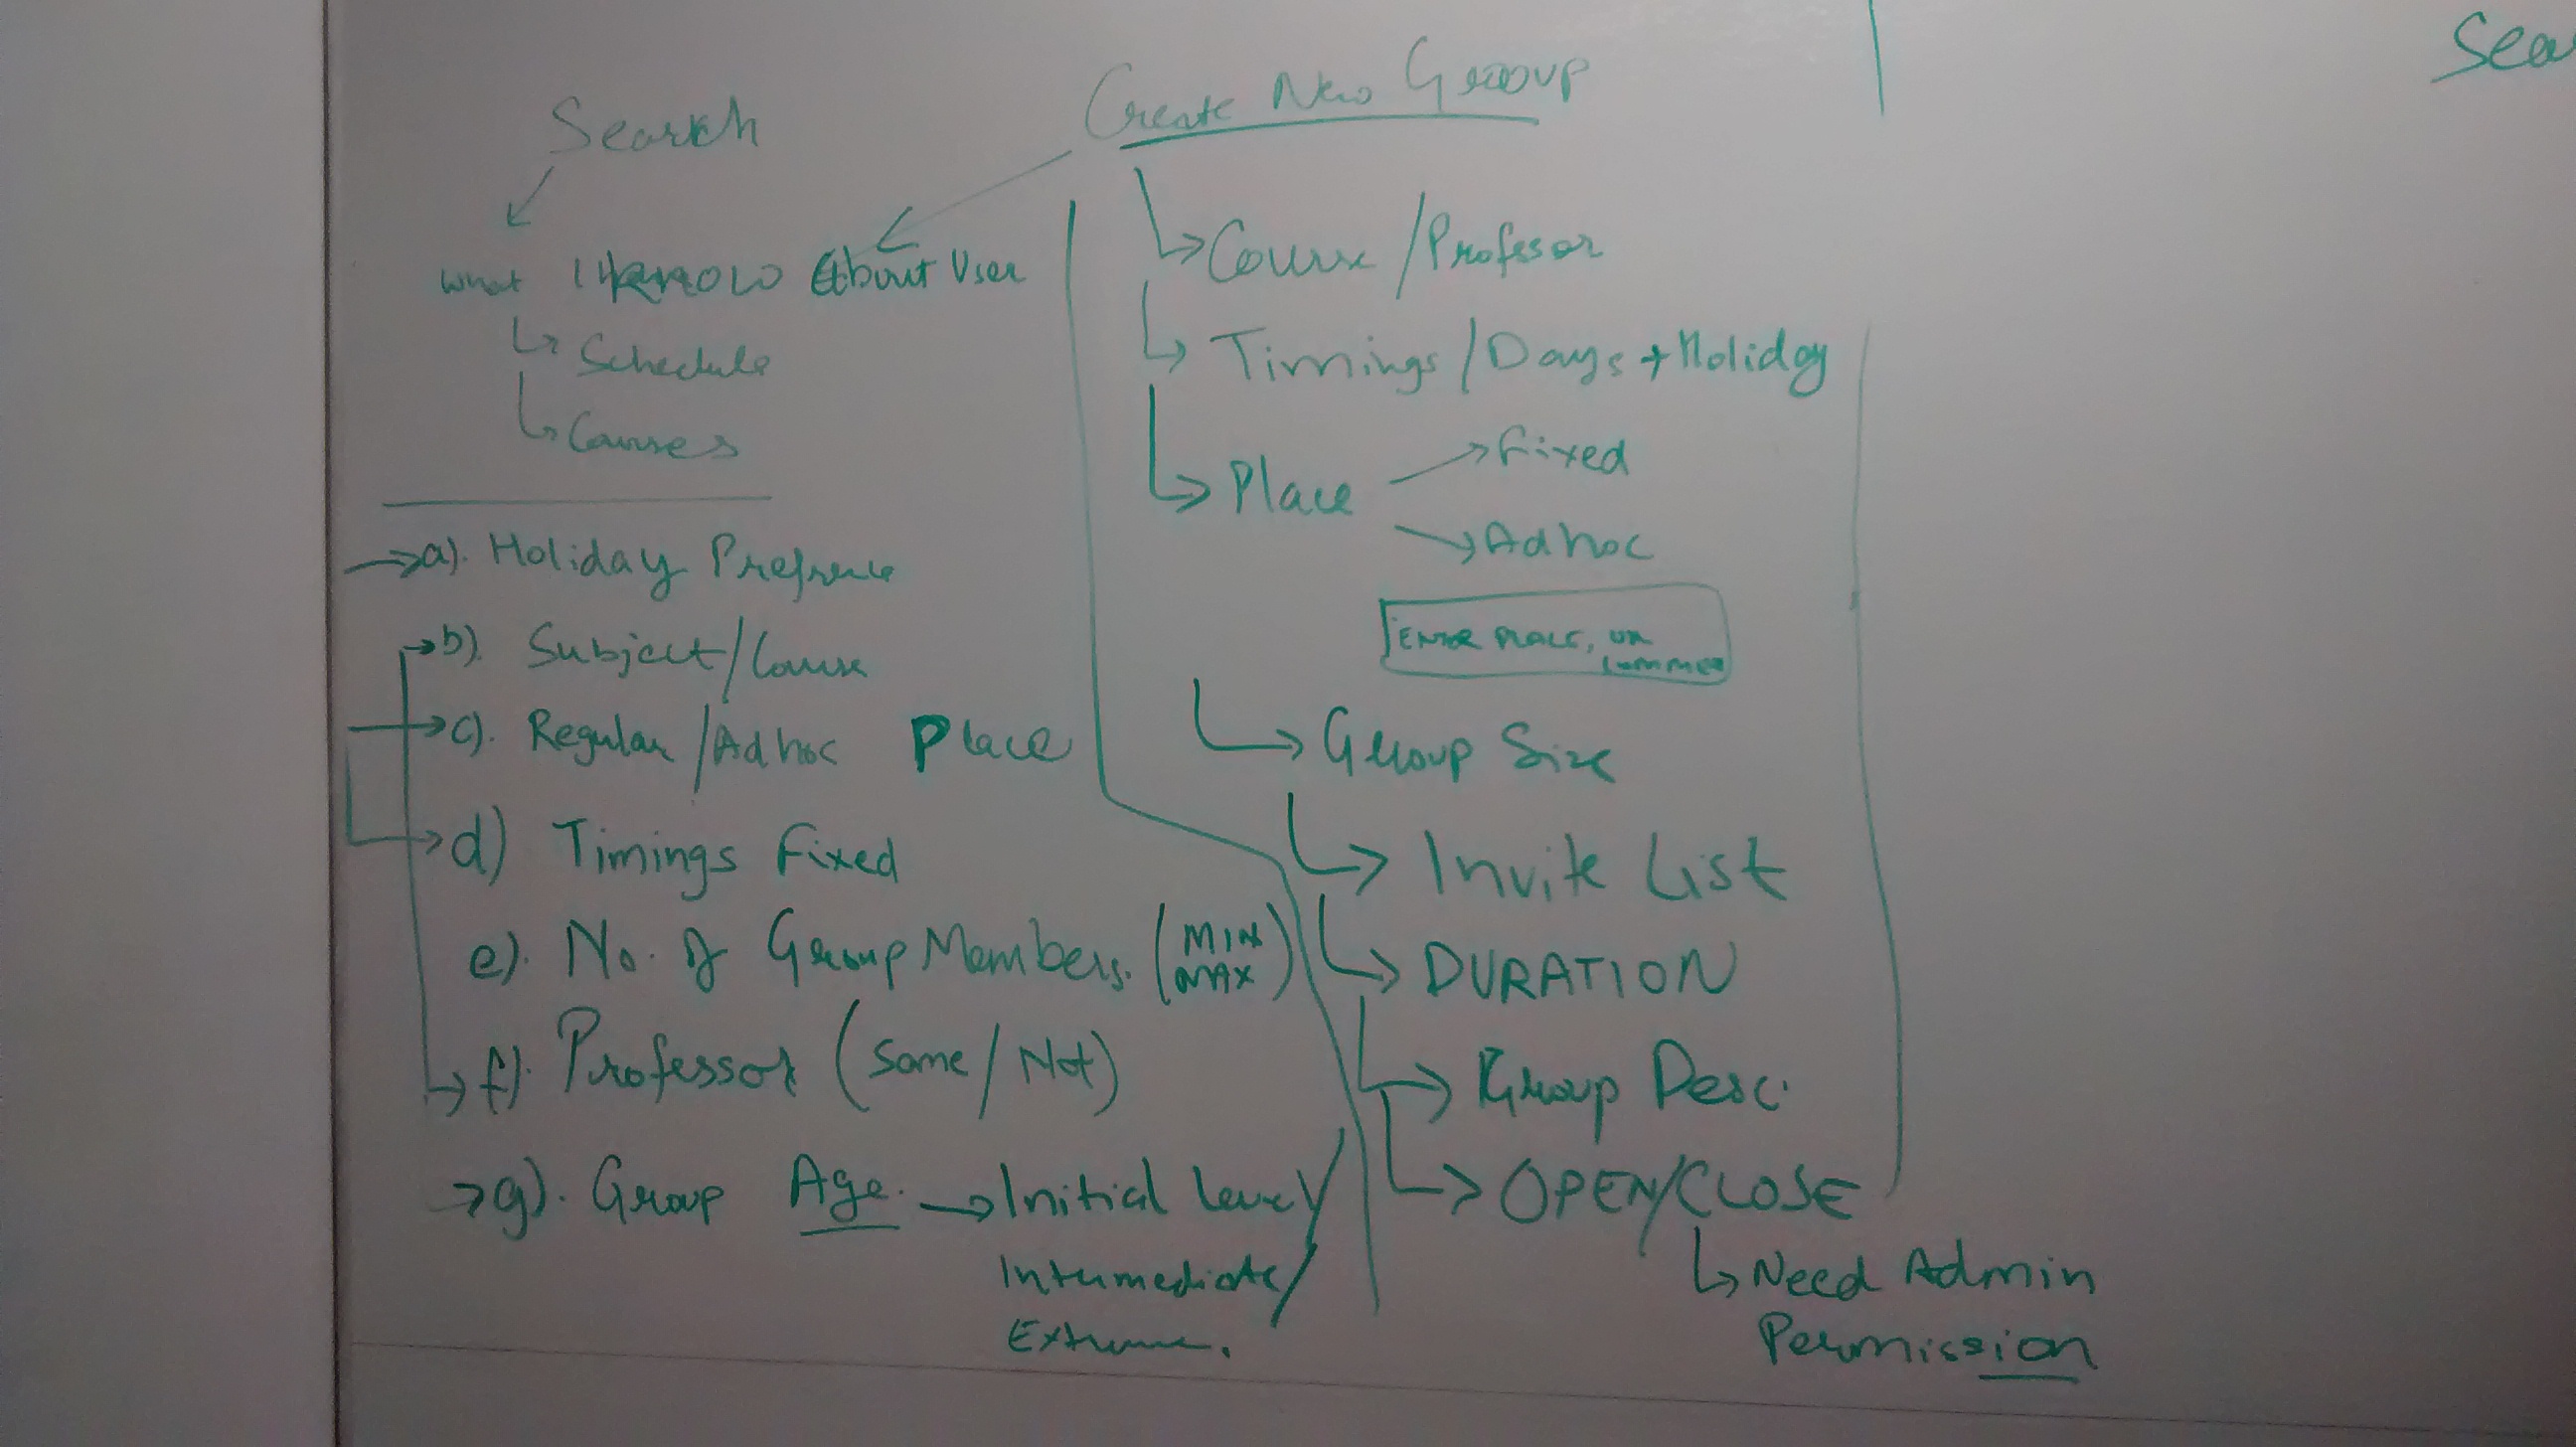 Search
what I know About User
Schedule
Courses
a). Holiday Prefrence
b). Subject/Course
c). Regular/Adhoc Place
d) Timings Fixed
e). No. of Group Members. (MIN
MAX)
f). Professor (Same/Not)
g). Group Age. → Initial level/
Intermediate/
Extreme.
Create New Group
Course/Professor
Timings/Days + Holiday
Place
Fixed
Adhoc
ENTER PLACE, OR
Group Size
Invite List
DURATION
Group Desc.
OPEN/CLOSE
Need Admin
Permission
Sea